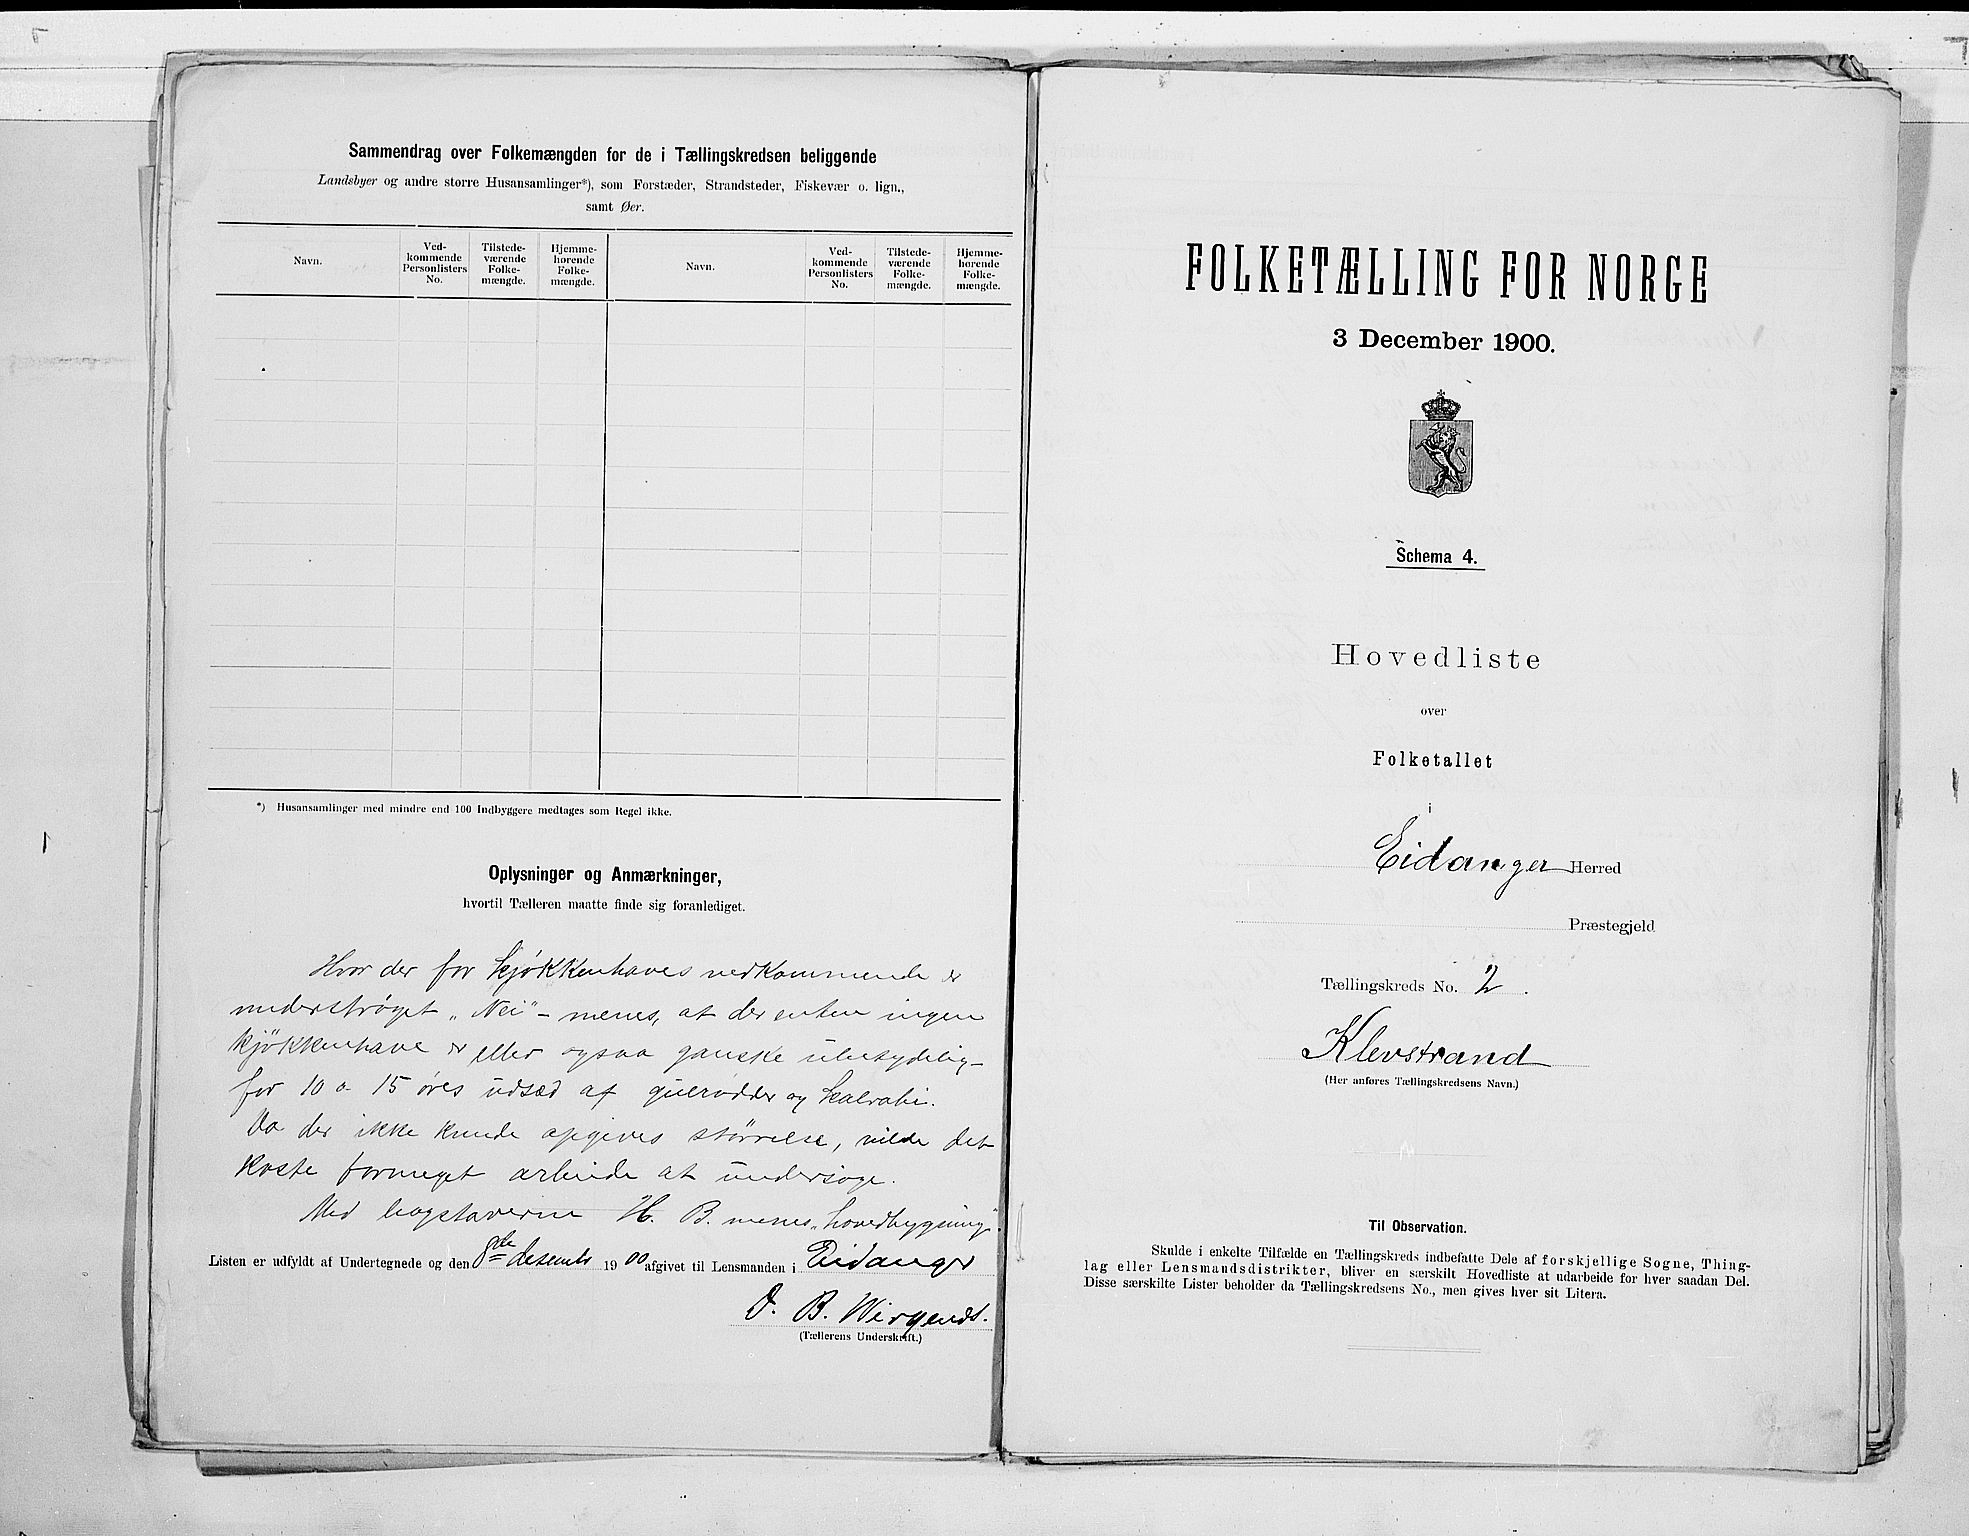 Sammendrag over Folkemængden for de i Tællingskredsen beliggende
Landsbyer og andre større Husansamlinger*), som Forstæder, Strandsteder, Fiskevær o. lign.,
samt Øer.
Navn.
Ved-
kommende
Personlisters
No.
Tilstede-
værende
Folke-
mængde.
Hjemme-
hørende
Folke-
mængde.
Navn.
Ved-
kommende
Personlisters
No.
Tilstede-
værende
Folke-
mængde.
Hjemme-
hørende
Folke-
mængde.
*) Husansamlinger med mindre end 100 Indbyggere medtages som Regel ikke.
Oplysninger og Anmærkninger,
hvortil Tælleren maatte finde sig foranlediget.
Hvor der for kjøkkenhaves vedkommende er
understrøget „Nei" - menes, at der enten ingen
kjøkkenhave er eller ogsaa ganske ubetydelig -
for 10 a 15 øres udsæd af gulerødder og kalrabi.
Da der ikke kunde opgives størrelse, vilde det
koste formeget arbeide at undersøge.
Med bogstaverne H. B. menes „hovedbygning".
Listen er udfyldt af Undertegnede og den 8de desember 1900 afgivet til Lensmanden i Eidanger
O. B. Wirgends.
(Tællerens Underskrift.)
FOLKETÆLLING FOR NORGE
3 December 1900.
Schema 4.
Hovedliste
over
Folketallet
i
Eidanger Herred
Præstegjeld
Tællingskreds No. 2.
Klevstrand
(Her anføres Tællingskredsens Navn.)
Til Observation.
Skulde i enkelte Tilfælde en Tællingskreds indbefatte Dele af forskjellige Sogne, Thing-
lag eller Lensmandsdistrikter, bliver en særskilt Hovedliste at udarbeide for hver saadan Del.
Disse særskilte Lister beholder da Tællingskredsens No., men gives hver sit Litera.